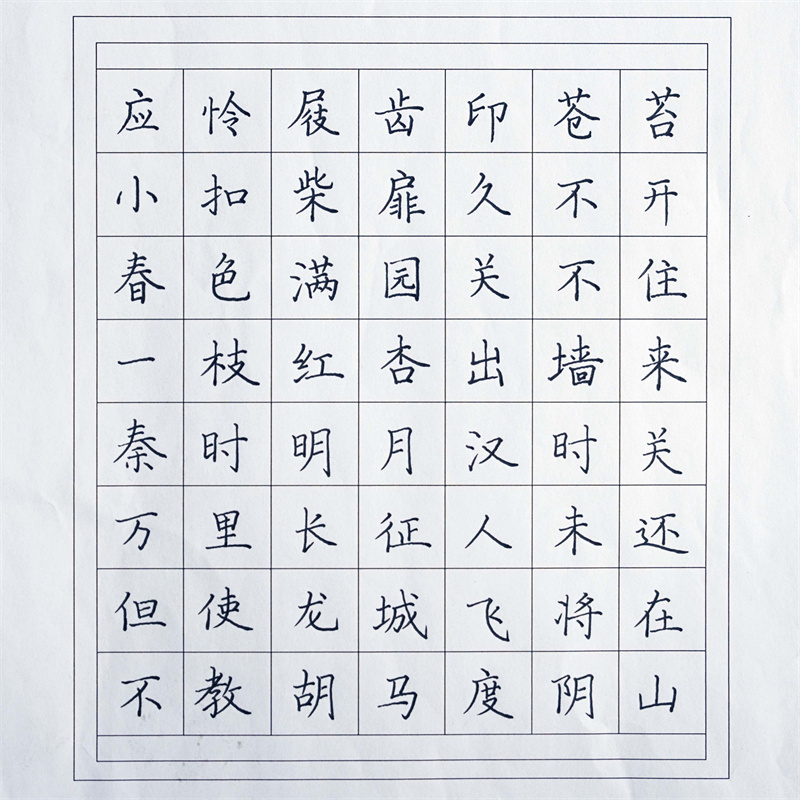 应怜屐齿印苍苔
小扣柴扉久不开
春色满园关不住
一枝红杏出墙来
秦时明月汉时关
万里长征人未还
但使龙城飞将在
不教胡马度阴山